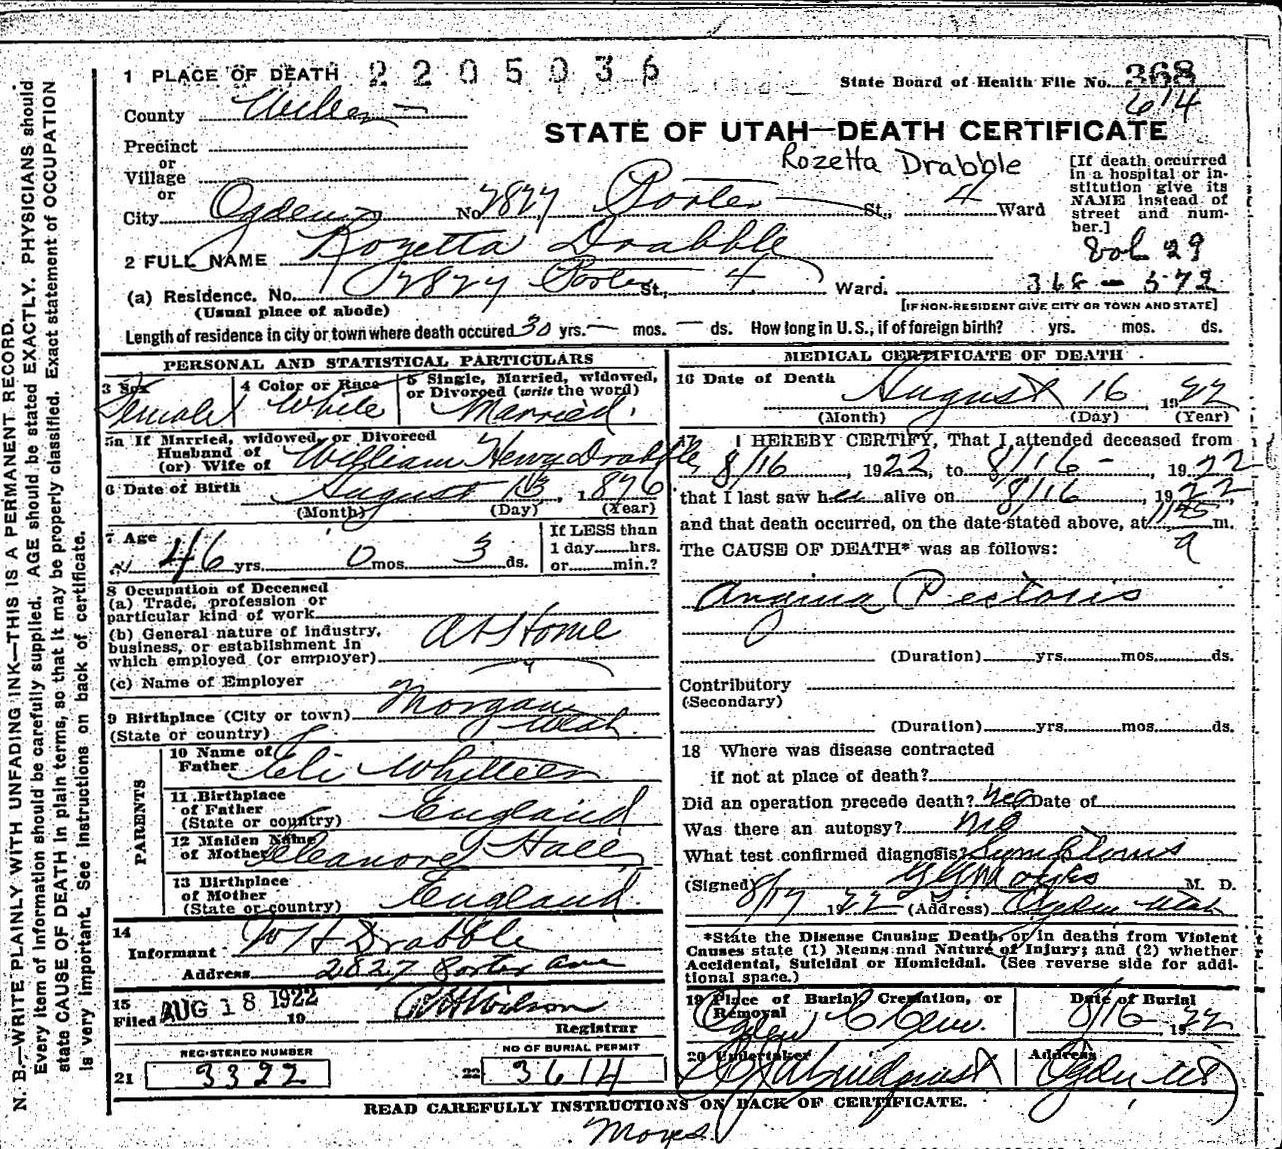 1 PLACE OF DEATH 2205036
State Board of Health File No. 368
614
County Weber
STATE OF UTAH—DEATH CERTIFICATE
Precinct
or
Village
or
Rozetta Drabble
[If death occurred
in a hospital or in-
stitution give its
NAME instead of
street and num-
ber.]
City Ogden No. 2827 Porter St., 4 Ward
2 FULL NAME Rozetta Drabble
Vol 29
368 - 572
(a) Residence. No. 2827 Porter St., 4 Ward.
(Usual place of abode)
[IF NON-RESIDENT GIVE CITY OR TOWN AND STATE]
Length of residence in city or town where death occured 30 yrs. — mos. — ds. How long in U.S., if of foreign birth? yrs. mos. ds.
PERSONAL AND STATISTICAL PARTICULARS
3 Sex
Female
4 Color or Race
White
5 Single, Married, widowed,
or Divorced (write the word)
Married.
5a If Married, widowed, or Divorced
Husband of
(or) Wife of William Henry Drabble
6 Date of Birth August 13, 1876
(Month) (Day) (Year)
7 Age
46 yrs. 0 mos. 3 ds.
If LESS than
1 day......hrs.
or......min.?
8 Occupation of Deceased
(a) Trade, profession or
particular kind of work
(b) General nature of industry,
business, or establishment in
which employed (or employer) At Home
(c) Name of Employer
9 Birthplace (City or town) Morgan
(State or country) Utah
PARENTS
10 Name of
Father Eli Whittier
11 Birthplace
of Father
(State or country) England
12 Maiden Name
of Mother Eleanore Hall
13 Birthplace
of Mother
(State or country) England.
14
Informant W H Drabble
Address 2827 Porter Ave
15
Filed AUG 18 1922 19
Wilson
Registrar
REGISTERED NUMBER
21 3322
NO OF BURIAL PERMIT
22 3614
MEDICAL CERTIFICATE OF DEATH
16 Date of Death
August 16 1922
(Month) (Day) (Year)
I HEREBY CERTIFY, That I attended deceased from
8/16, 1922, to 8/16-, 1922
that I last saw her alive on 8/16, 1922
and that death occurred, on the date stated above, at m.
a
The CAUSE OF DEATH* was as follows:
Angina Pectoris
(Duration)......yrs......mos......ds.
Contributory
(Secondary)
(Duration)......yrs......mos......ds.
18 Where was disease contracted
if not at place of death?
Did an operation precede death? no Date of
Was there an autopsy? no
What test confirmed diagnosis? Symptoms
(Signed) M. D.
8/17 1922 (Address) Ogden Utah
*State the Disease Causing Death, or in deaths from Violent
Causes state (1) Means and Nature of Injury; and (2) whether
Accidental, Suicidal or Homicidal. (See reverse side for addi-
tional space.)
19 Place of Burial Cremation, or
Removal
Ogden C Cem.
Date of Burial
8/16 1922
20 Undertaker
Lindquist
Address
Ogden, Ut
READ CAREFULLY INSTRUCTIONS ON BACK OF CERTIFICATE.
N. B.—WRITE PLAINLY WITH UNFADING INK—THIS IS A PERMANENT RECORD.
Every item of information should be carefully supplied. AGE should be stated EXACTLY. PHYSICIANS should
state CAUSE OF DEATH in plain terms, so that it may be properly classified. Exact statement of OCCUPATION
is very important. See instructions on back of certificate.